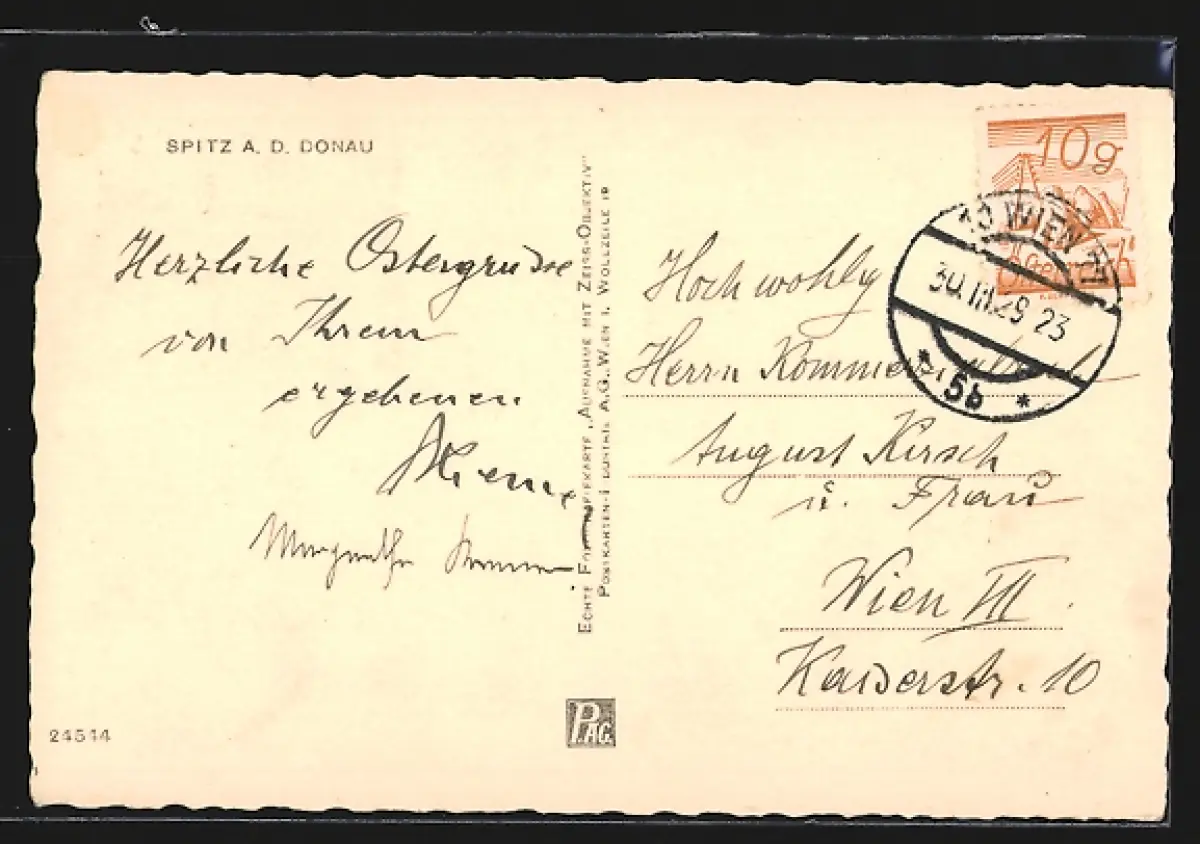 SPITZ A. D. DONAU
Herzliche Ostergrüsse
von Ihrem
ergebenen
24514
ECHTE FOTOGRAFIEKARTE „AUFNAHME MIT ZEISS-OBJEKTIV"
POSTKARTEN-INDUSTRIE A.G., WIEN I. WOLLZEILE 19
P.AG.
10g
Österreich
WIEN
30.III.29 23
* 5b *
Hochwohlg
Herrn
August Kirsch
u. Frau
Wien III.
Kaiserstr. 10